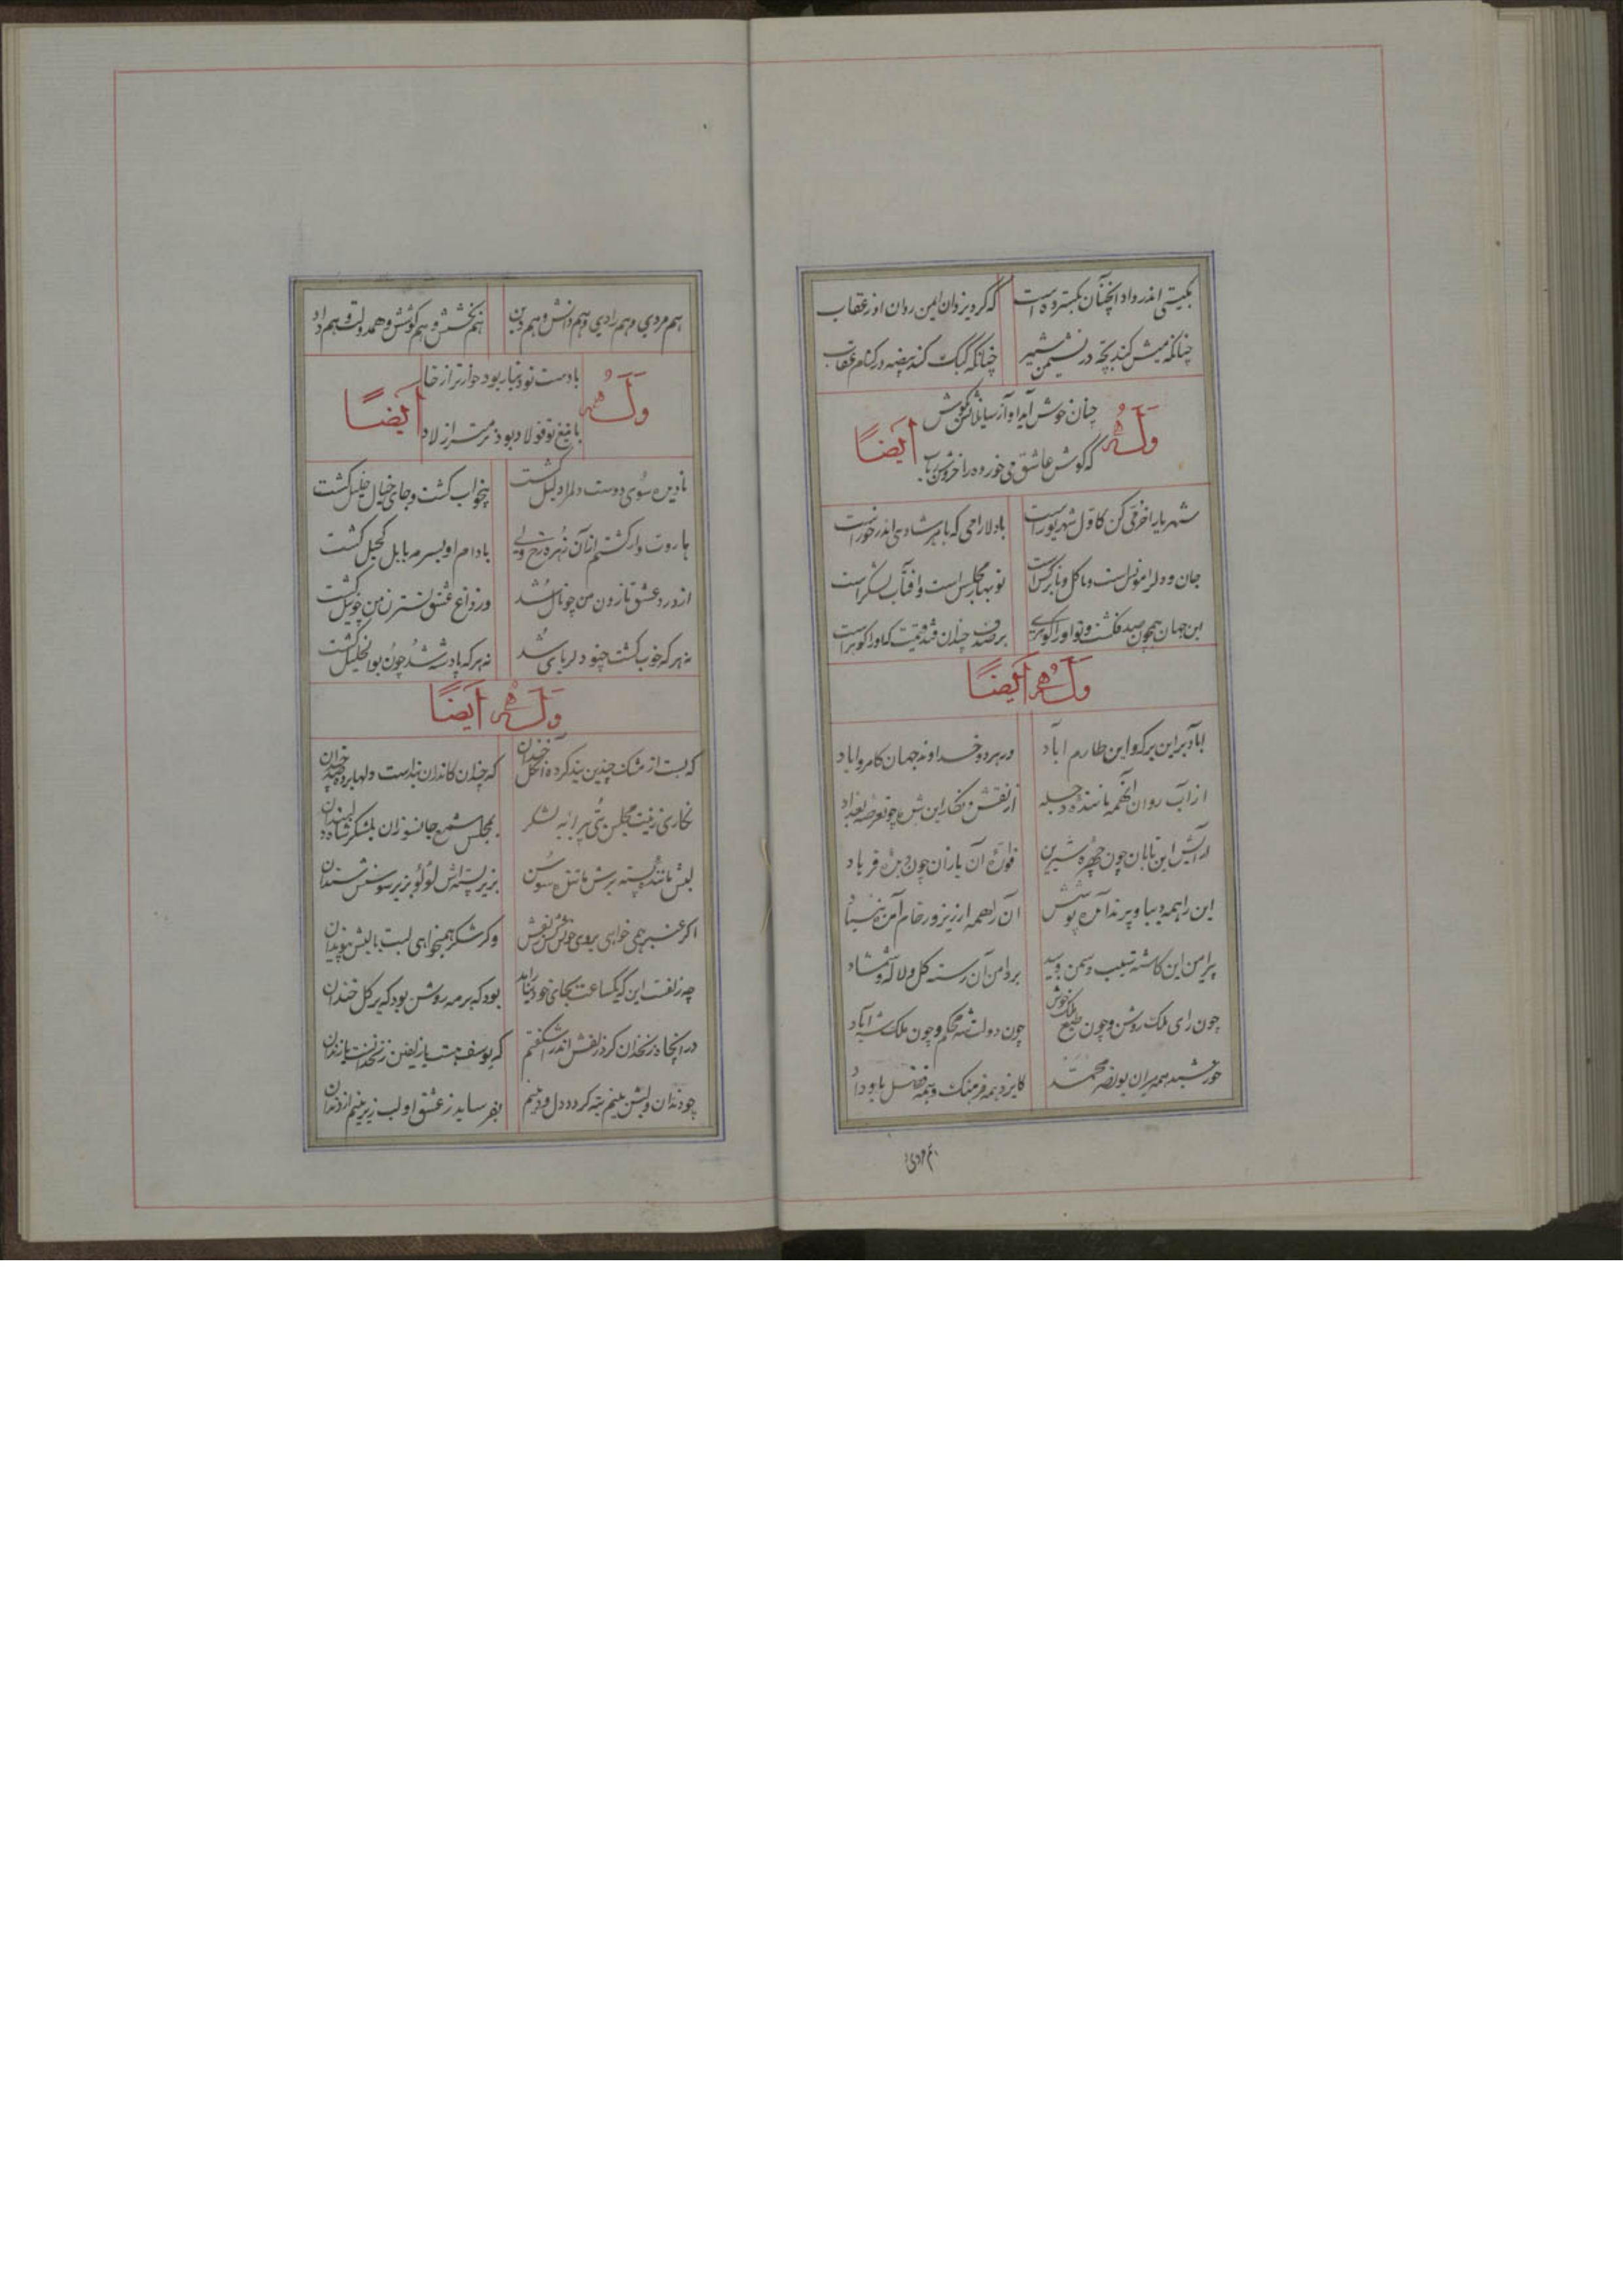 بکیتی اندر داد انچنان بکسترده است که کرد یزدان ایمن روان او ز عقاب
چنانکه میش کند بچه در نشیمن شیر چنانکه کبک کند بیضه در کنام عقاب
وله ایضاً
چنان خوش آید آواز سایلانش بکوش
که کوش عاشق می خورده را خروش رباب
شهریارا خرمی کن کاول شهریور است با دلارامی که با هر شادیی اندر خور است
جان و دلرا مونس است و با کل و با نرکس است نوبهار مجلس است و افتاب لشکر است
این جهان همچون صدف کشت و تو او را کوهری بر صدف چندان فتد قیمت که او را کوهر است
وله ایضاً
اباد بر این برکه و این طارم اباد در هر دو خداوند جهان کامروا باد
از آب روان آنهمه ماننده دجله از نقش و نکار این شده چون عرصه بغداد
آرایش این تابان چون چهره شیرین فواره آن یازان چون دیده فرهاد
این را همه دیبا و پرند آمده پوشش آن را همه ارزیز و رخام آمده بنیاد
پیرامن این کاشته سیب و سمن و بید بر دامن آن رسته کل و لاله و شمشاد
چون رای ملک روشن و چون طبع ملک خوش چون دولت شه محکم و چون ملک شه آباد
خورشید همه میران بو نصر محمد کایزد همه فرهنک و همه فضل باو داد
هم مردی
هم مردی و هم رادی و هم دانش و هم دین هم بخشش و هم کوشش و هم دولت و هم داد
وله ایضاً
با دست تو دینار بود خوارتر از خاک
با تیغ تو فولاد بود نرمتر از لاد
تا دیده سوی دوست دلم را دلیل کشت بیخواب کشت و جای خیال خلیل کشت
هاروت وار کشتم از آن زهره رخ
با دام او بسرمه بابل کحیل کشت
از درد عشق نارون من چو نال شد وز داغ عشق نسترن من چو نیل کشت
نه هر که خوب کشت چنو دلربای شد نه هر که پادشه شد چون بو الخلیل کشت
وله ایضاً
که بست از مشک چندین بند کرده آن کل خندان که چندان کاندران بند است دلها برده صد چندان
نکاری زینت مجلس بتی پیرایه لشکر بمجلس شمع جانسوزان بلشکر شاه دلبندان
لبش ماننده پسته برش ماننده سوسن بزیر پسته اش لؤلؤ بزیر سوسنش سندان
اکر عنبر همی خواهی بروی خوش زلفش و کر شکر همیخواهی لبت با لبش پیوندان
چه زلفست این که یکساعت بجای خود نیاراید بود که بر مه روشن بود که بر کل خندان
در انجا در زنخدان کرد زلفش اندر اشکفتم که یوسف هست یا زلفین زنخدانست یا زندان
چو دندان و لبش بینم بته کردد دل و دینم بفرساید ز عشق او لب زیرینم از دندان